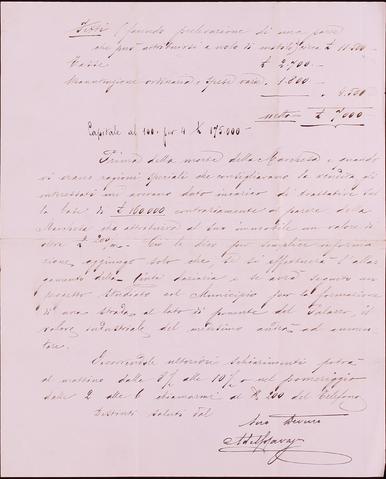 Fitti (facendo prelevazione di una parte
che può attribuirsi a nolo di mobili) circa £ 11.500
Tasse £ 2.700.-
Manutenzione ordinaria e spese varie 1.800
" 4.500
netto £ 7000
Capitale al 100. per 4 £ 175.000-
Prima della morte della Marchesa e quando
vi erano ragioni speciali che consigliavano la vendita gl'
interessati mi avevano dato incarico di trattative sul
la base di £ 160.000 contrariamente al parere della
Marchesa che attribuiva al suo immobile un valore di
oltre £ 200/m. Ciò le dico per semplice informa
zione, aggiungo solo che se si effettuerà l'allar
gamento della cinta daziaria e se avrà seguito un
progetto studiato col Municipio per la formazione
di una strada al lato di ponente del Palazzo, il
valore industriale del medesimo andrà ad aumen-
tare.
Occorrendole ulteriori schiarimenti potrà
al mattino dalle 8½ alle 10½ o nel pomeriggio
dalle 2 alle 6 chiamarmi al N 200 del Telefono
Distinti saluti dal
Suo Devmo